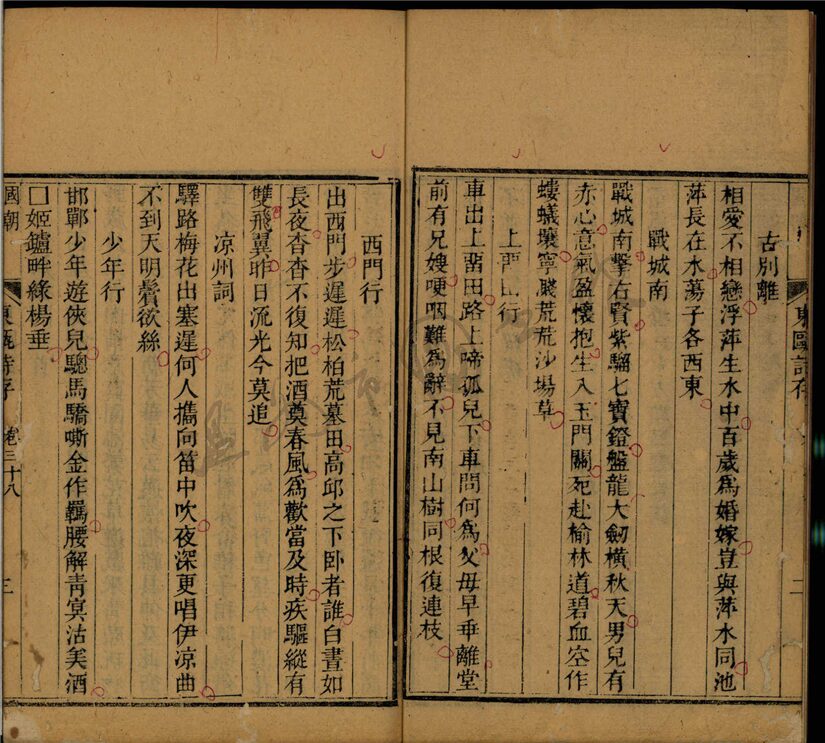 古別離
相愛不相戀浮萍生水中百歲爲婚嫁豈與萍水同池
萍長在水蕩子各西東
戰城南
戰城南擊右賢紫騮七寶鐙盤龍大劒橫秋天男兒有
赤心意氣盈懷抱生入玉門關死赴榆林道碧血空作
螻蟻壤寧賤荒荒沙場草
上留田行
車出上留田路上啼孤兒下車問何爲父母早垂離堂
前有兄嫂哽咽難爲辭不見南山樹同根復連枝
西門行
出西門步遲遲松柏荒墓田高邱之下卧者誰白晝如
長夜杳杳不復知把酒奠春風爲歡當及時疾驅縱有
雙飛翼昨日流光今莫追
凉州詞
驛路梅花出塞遲何人攜向笛中吹夜深更唱伊凉曲
不到天明鬢欲絲
少年行
邯鄲少年遊俠兒驄馬驕嘶金作羈腰解青㝠沽美酒
□姬鑪畔綠楊垂
國朝
東甌詩存
卷三十八
三